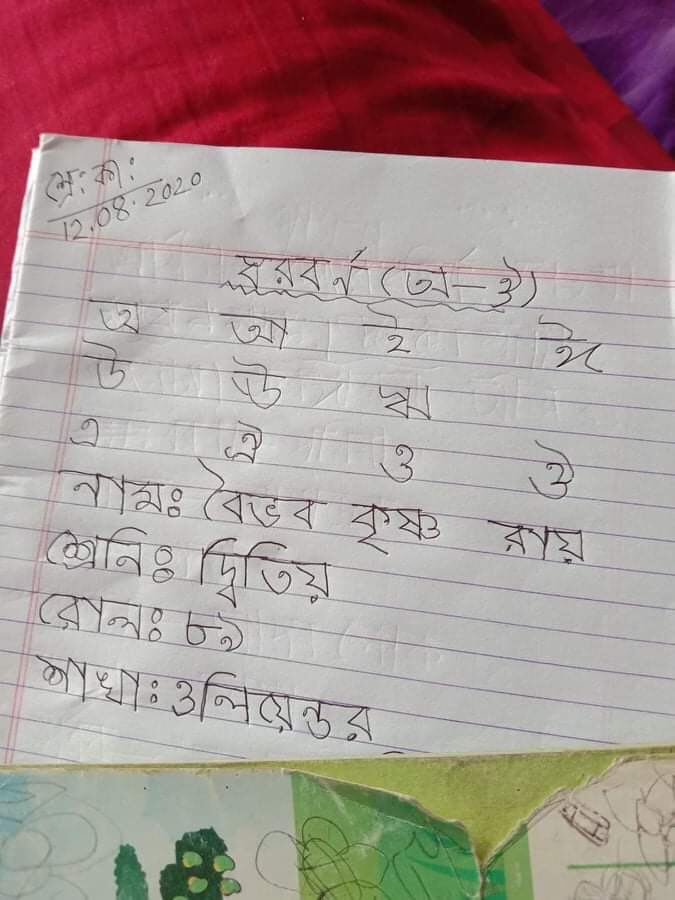 শ্রে: কা:
12.08.2020
স্বরবর্ন (অ-ঔ)
অ আ ই ঈ
উ ঊ ঋ
এ ঐ ও ঔ
নামঃ বৈভব কৃষ্ণ রায়
শ্রেনিঃ দ্বিতিয়
রোলঃ ৮৯
শাখাঃ ওলিয়েন্ডর